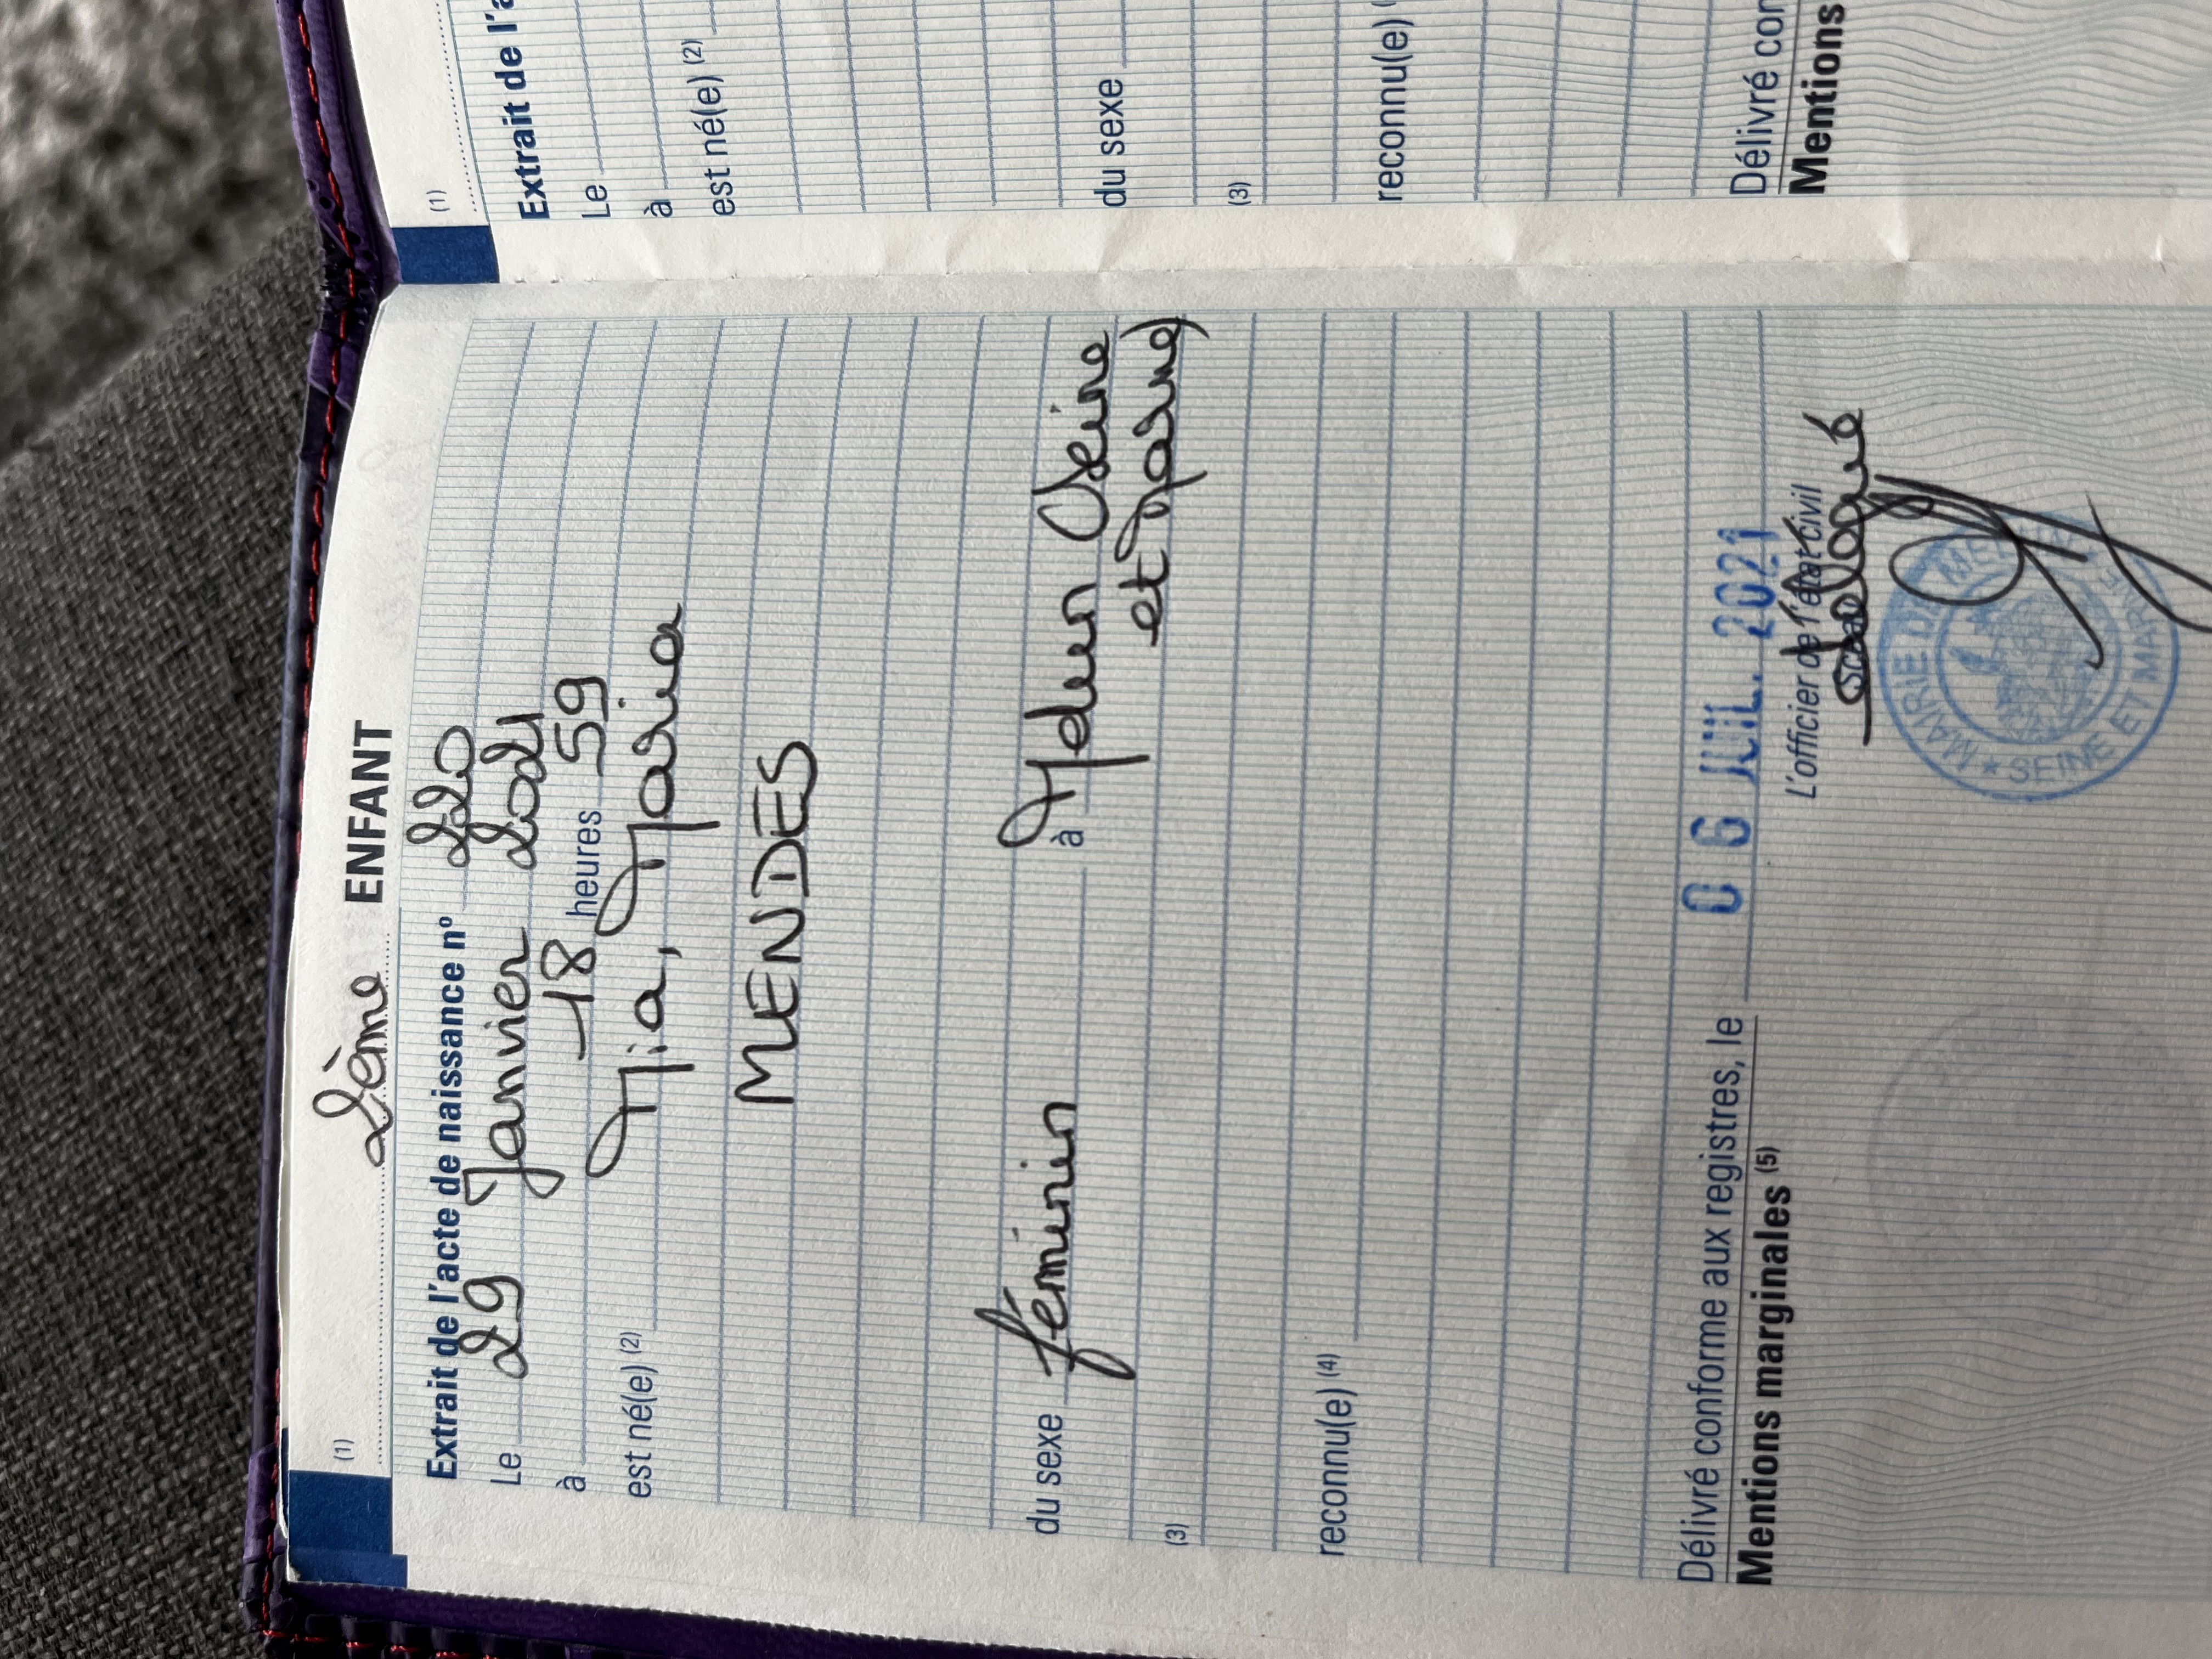 (1) 2ème ENFANT
Extrait de l'acte de naissance nº 220
Le 29 Janvier 2021
à 18 heures 59
est né(e) (2) Mia, Maria
MENDES
du sexe féminin à Melun (Seine
et Marne)
(3)
reconnu(e) (4)
Délivré conforme aux registres, le 06 JUIL. 2021
Mentions marginales (5) L'officier de l'état civil
délégué
MAIRIE DE MELUN
★ SEINE ET MARNE
(1)
Extrait de l'a
Le
à
est né(e) (2)
du sexe
(3)
reconnu(e) (
Délivré con
Mentions